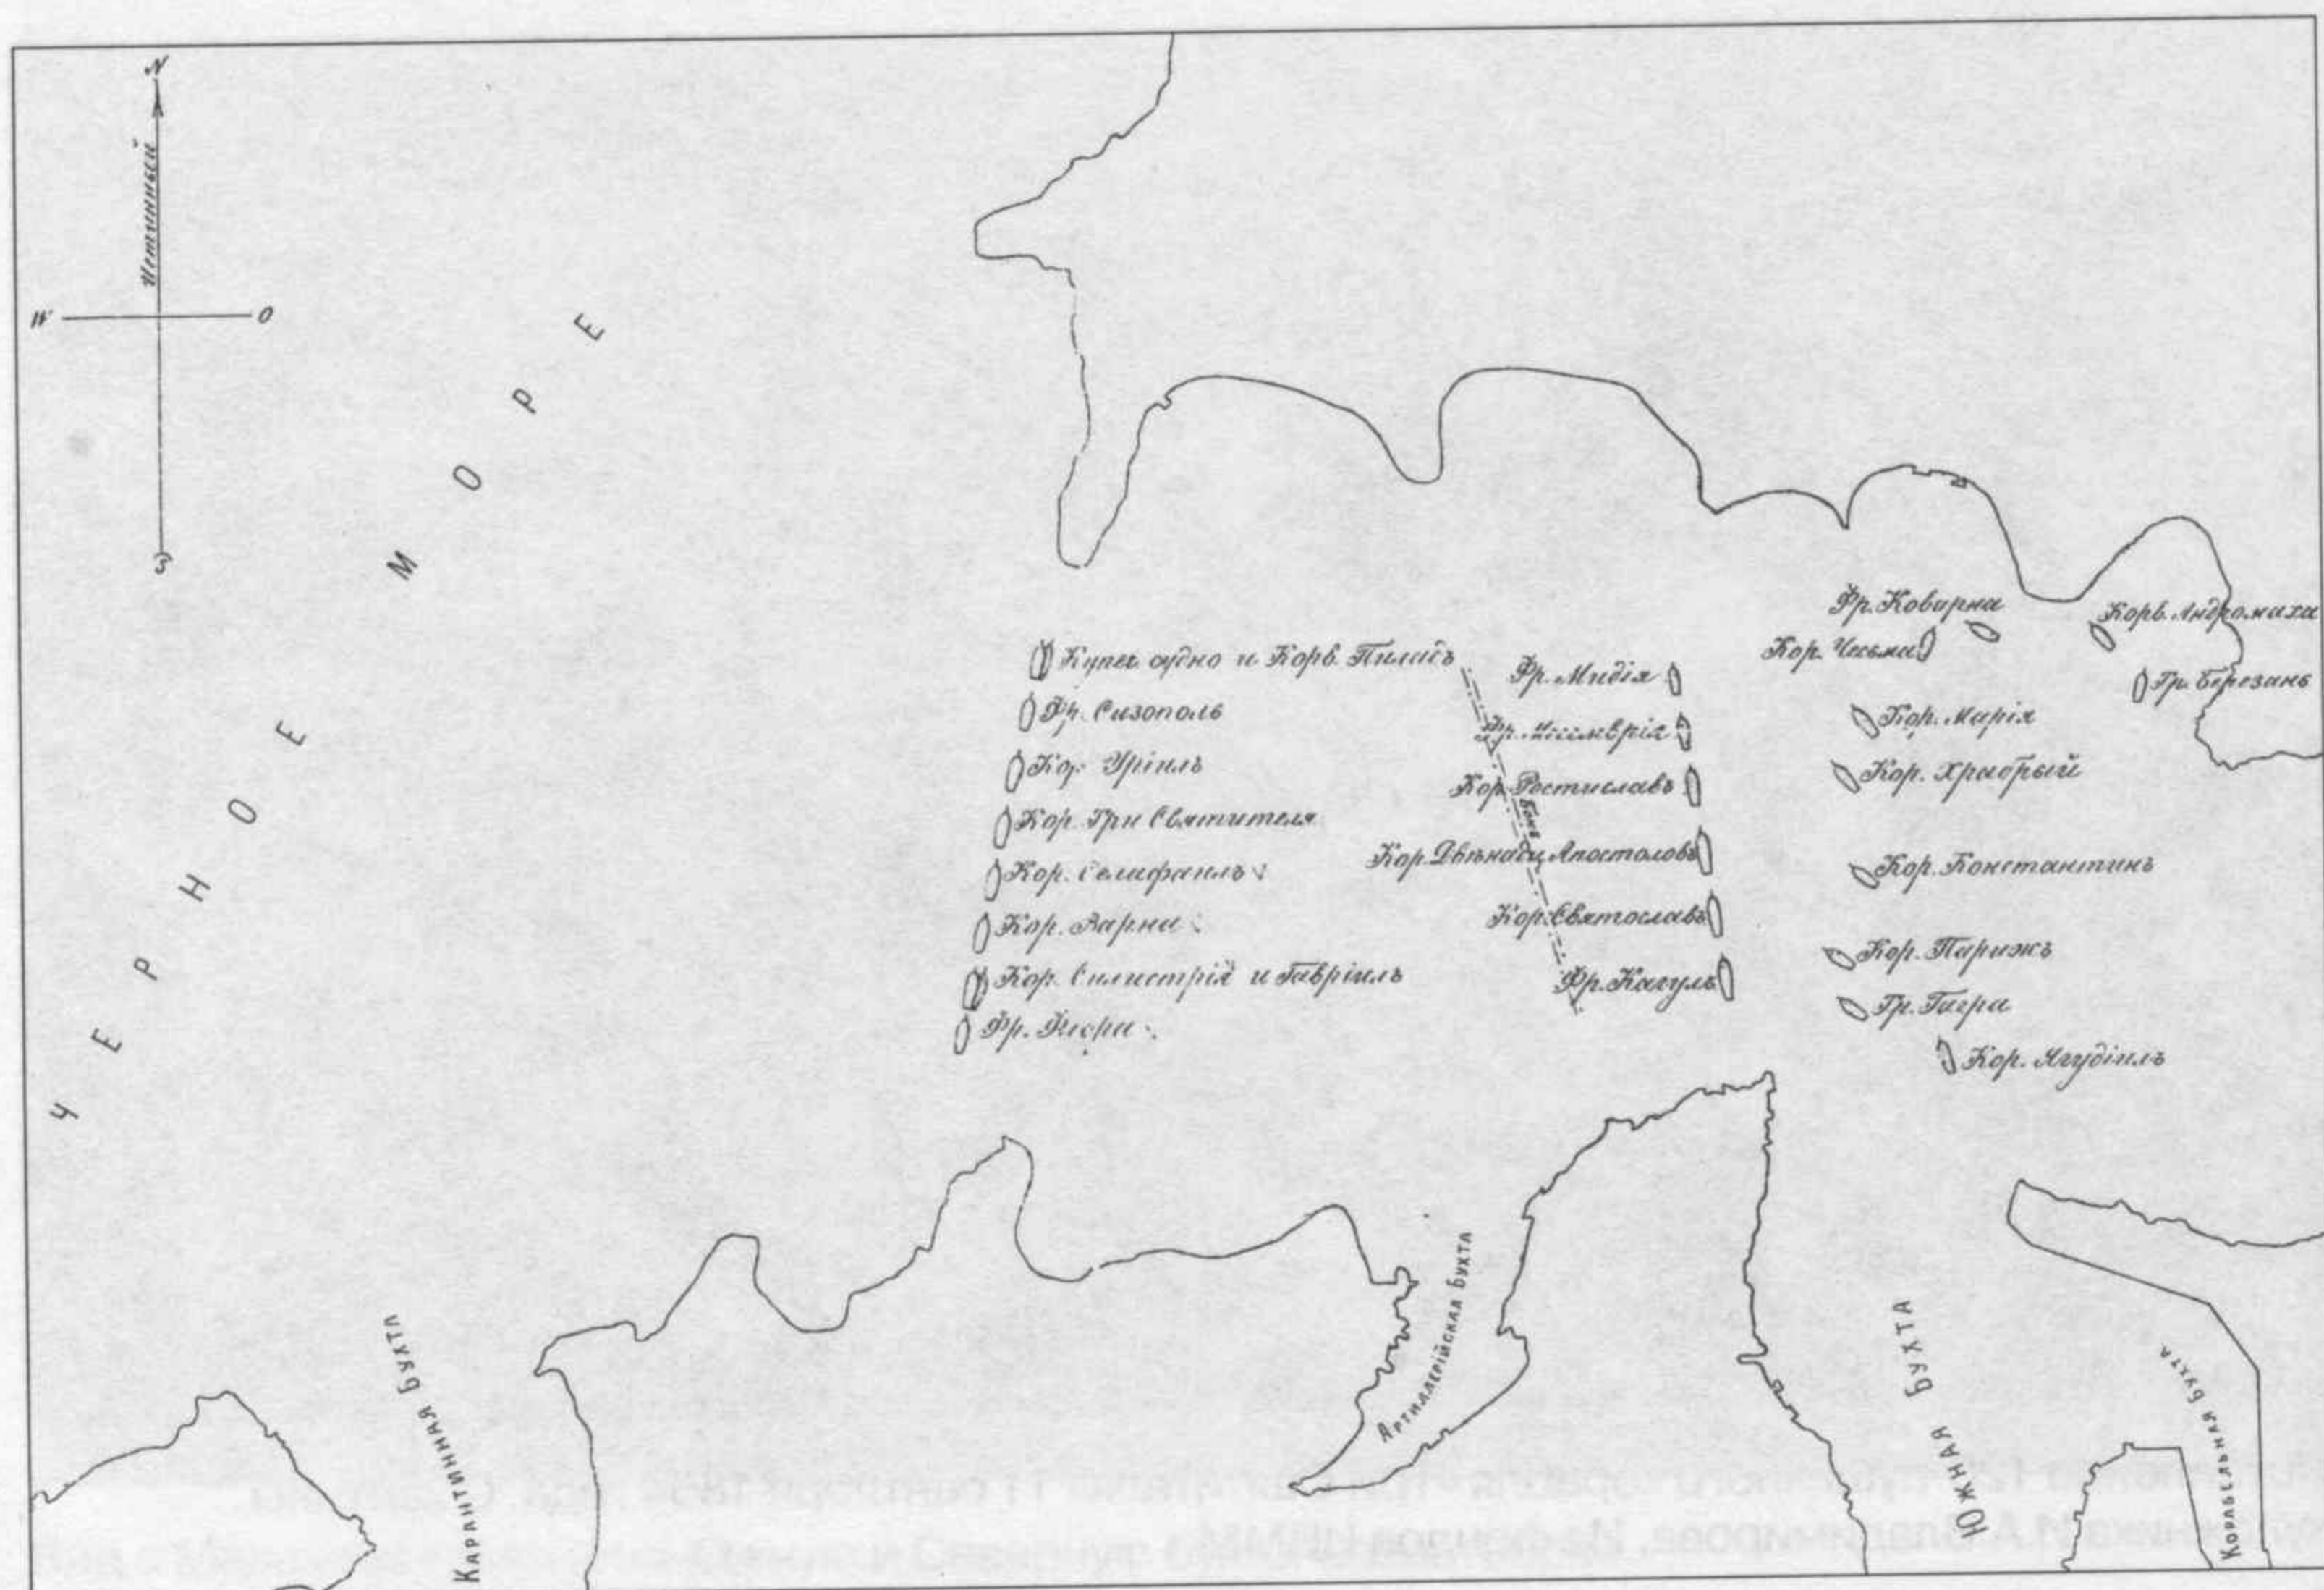 N
Истинный
W
O
S
ЧЕРНОЕ МОРЕ
Купеч. судно и Корв. Пиладъ
Фр. Сизополь
Кор. Уріилъ
Кор. Три Святителя
Кор. Селафаилъ
Кор. Варна
Кор. Силистрія и Гавріилъ
Фр. Флора
Бонъ
Фр. Мидія
Фр. Месемврія
Кор. Ростиславъ
Кор. Двѣнадц. Апостоловъ
Кор. Святославъ
Фр. Кагулъ
Фр. Коварна
Кор. Чесма
Корв. Андромаха
Гр. Березань
Кор. Марія
Кор. Храбрый
Кор. Константинъ
Кор. Парижъ
Гр. Гагра
Кор. Ягудіилъ
Карантинная Бухта
Артиллерійская Бухта
Южная Бухта
Корабельная Бухта